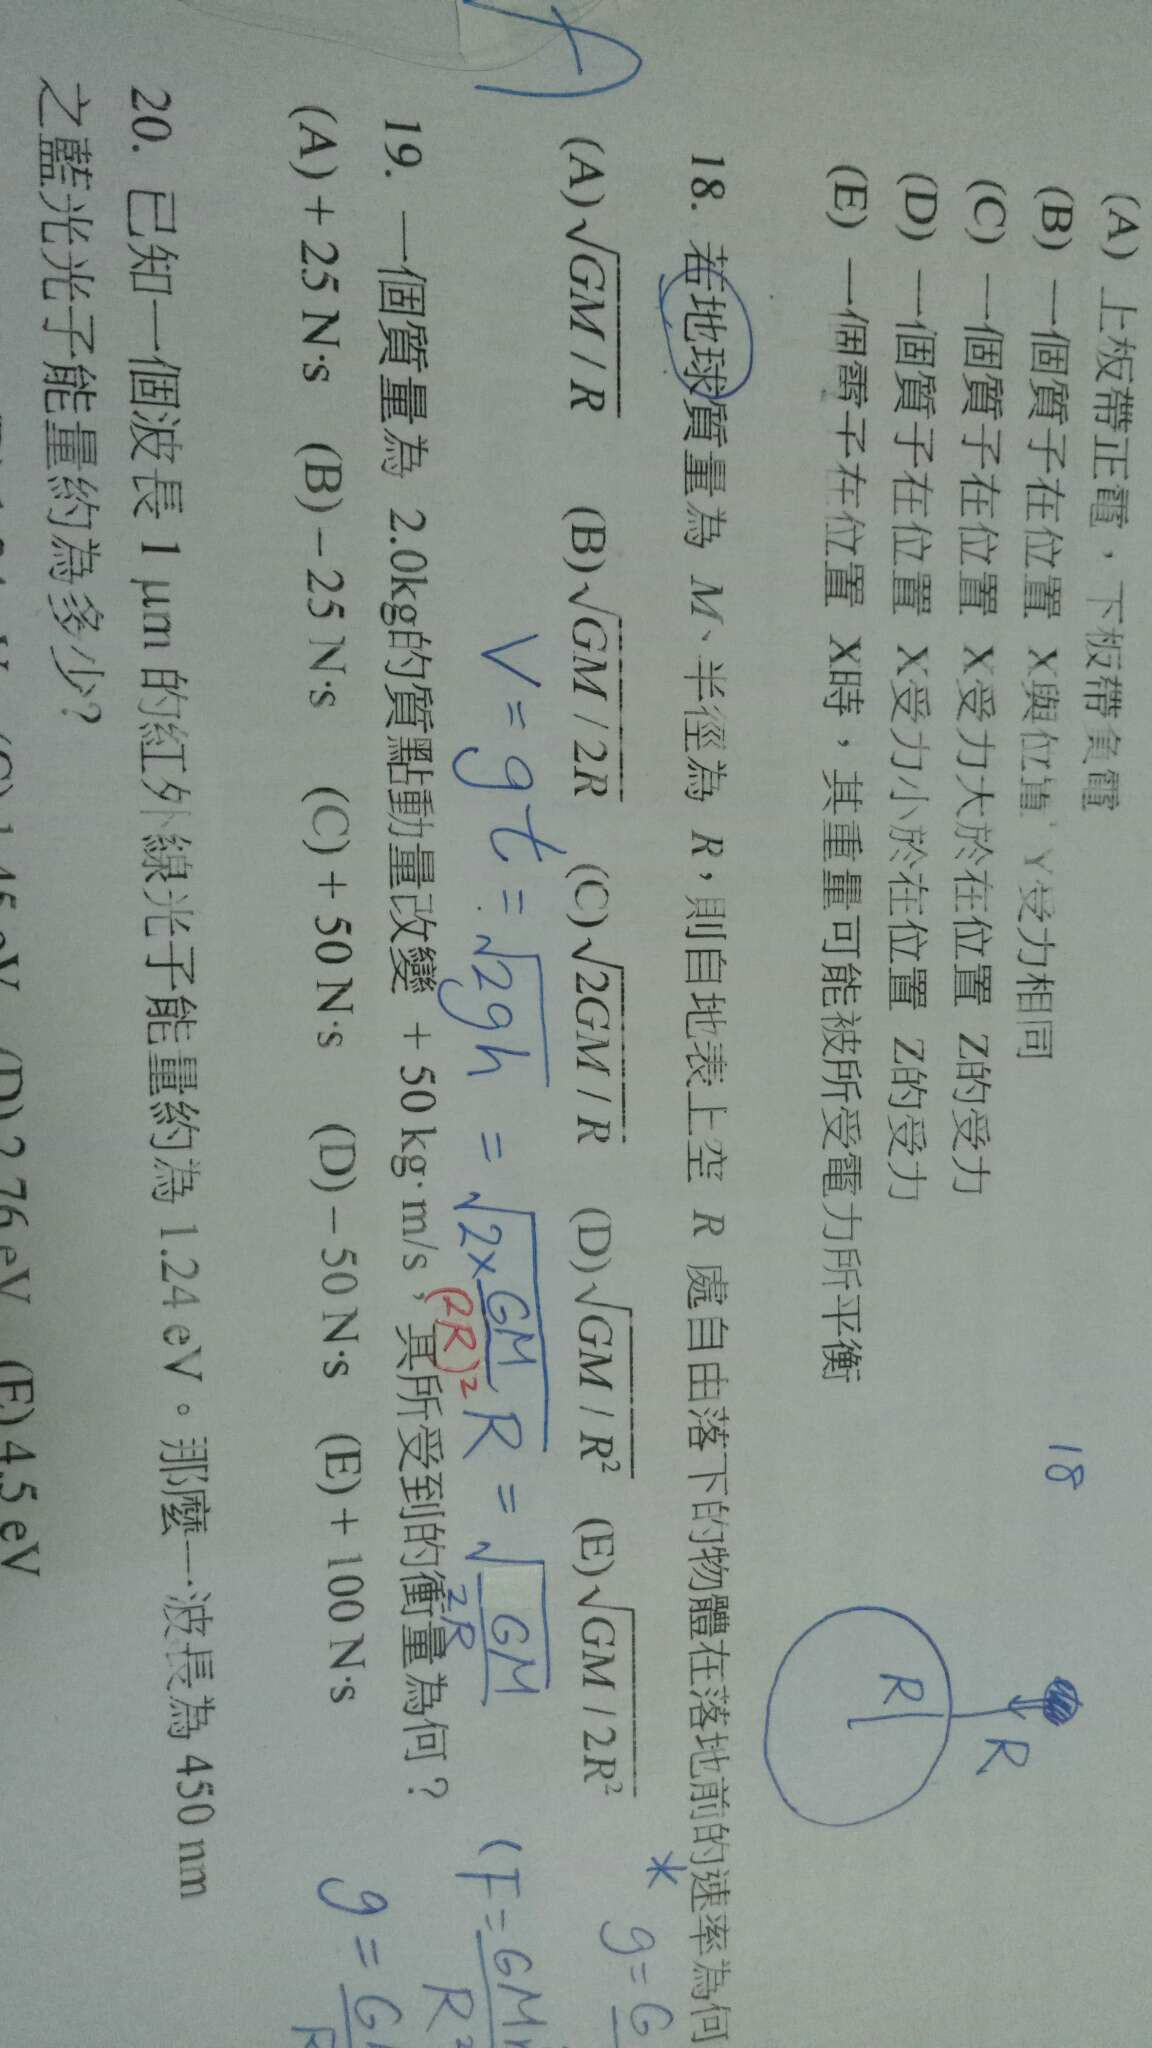 (A) 上板帶正電，下板帶負電
(B) 一個質子在位置 X與位置 Y受力相同
(C) 一個質子在位置 X受力大於在位置 Z的受力
(D) 一個質子在位置 X受力小於在位置 Z的受力
(E) 一個電子在位置 X時，其重量可能被所受電力所平衡
18
R
R
18. 若地球質量為 M、半徑為 R，則自地表上空 R 處自由落下的物體在落地前的速率為何
(A)√GM/R (B)√GM/2R (C)√2GM/R (D)√GM/R² (E)√GM/2R²
* g=G
V=gt=√2gh=√2×GM/(2R)² R=√GM/2R
(F=GM
R²
g=G
19. 一個質量為 2.0kg的質點動量改變 +50kg·m/s，其所受到的衝量為何？
(A)+25N·s (B)−25N·s (C)+50N·s (D)−50N·s (E)+100N·s
20. 已知一個波長 1 μm 的紅外線光子能量約為 1.24 eV。那麼一波長為 450 nm
之藍光光子能量約為多少？
(D)2.76eV (E)4.5eV